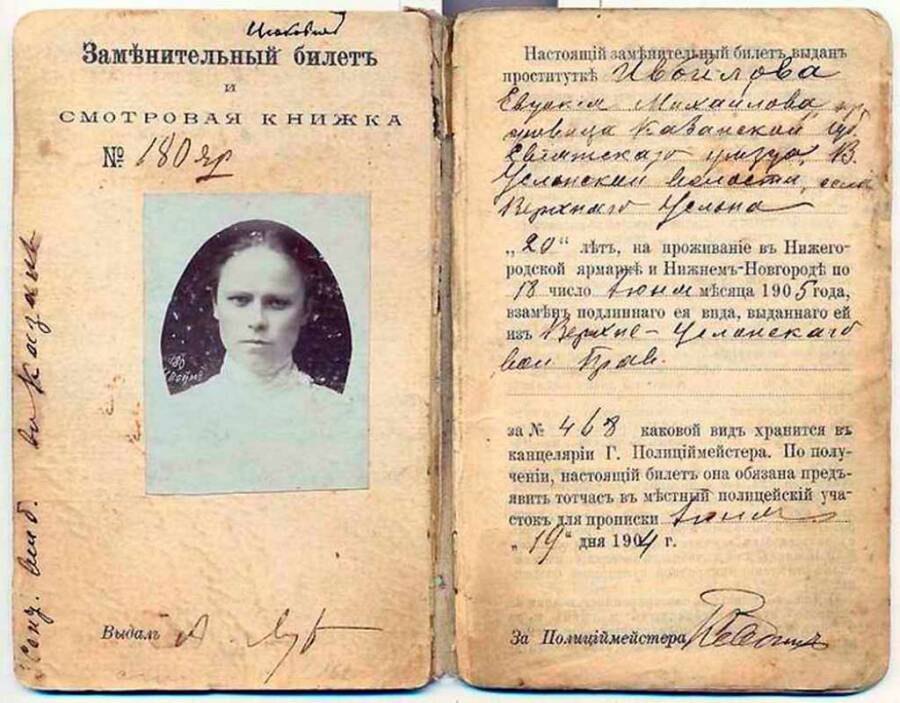 Замѣнительный билетъ
и
СМОТРОВАЯ КНИЖКА
№ 180 яр
Выдалъ
Настоящій замѣнительный билетъ выданъ
проституткѣ
Евдокія Михайлова
Казанской губ.
уѣзда, В.
Услонской волости, села
Верхняго Услона
„20“ лѣтъ, на проживаніе въ Нижего-
родской ярмаркѣ и Нижнемъ-Новгородѣ по
18 число Іюня мѣсяца 1905 года,
взамѣнъ подлиннаго ея вида, выданнаго ей
изъ Верхне-Услонскаго
вол. Прав.
за № 468 каковой видъ хранится въ
канцеляріи Г. Полиціймейстера. По полу-
ченіи, настоящій билетъ она обязана предъ-
явить тотчасъ въ мѣстный полицейскій уча-
стокъ для прописки Іюня
„19“ дня 1904 г.
За Полиціймейстера